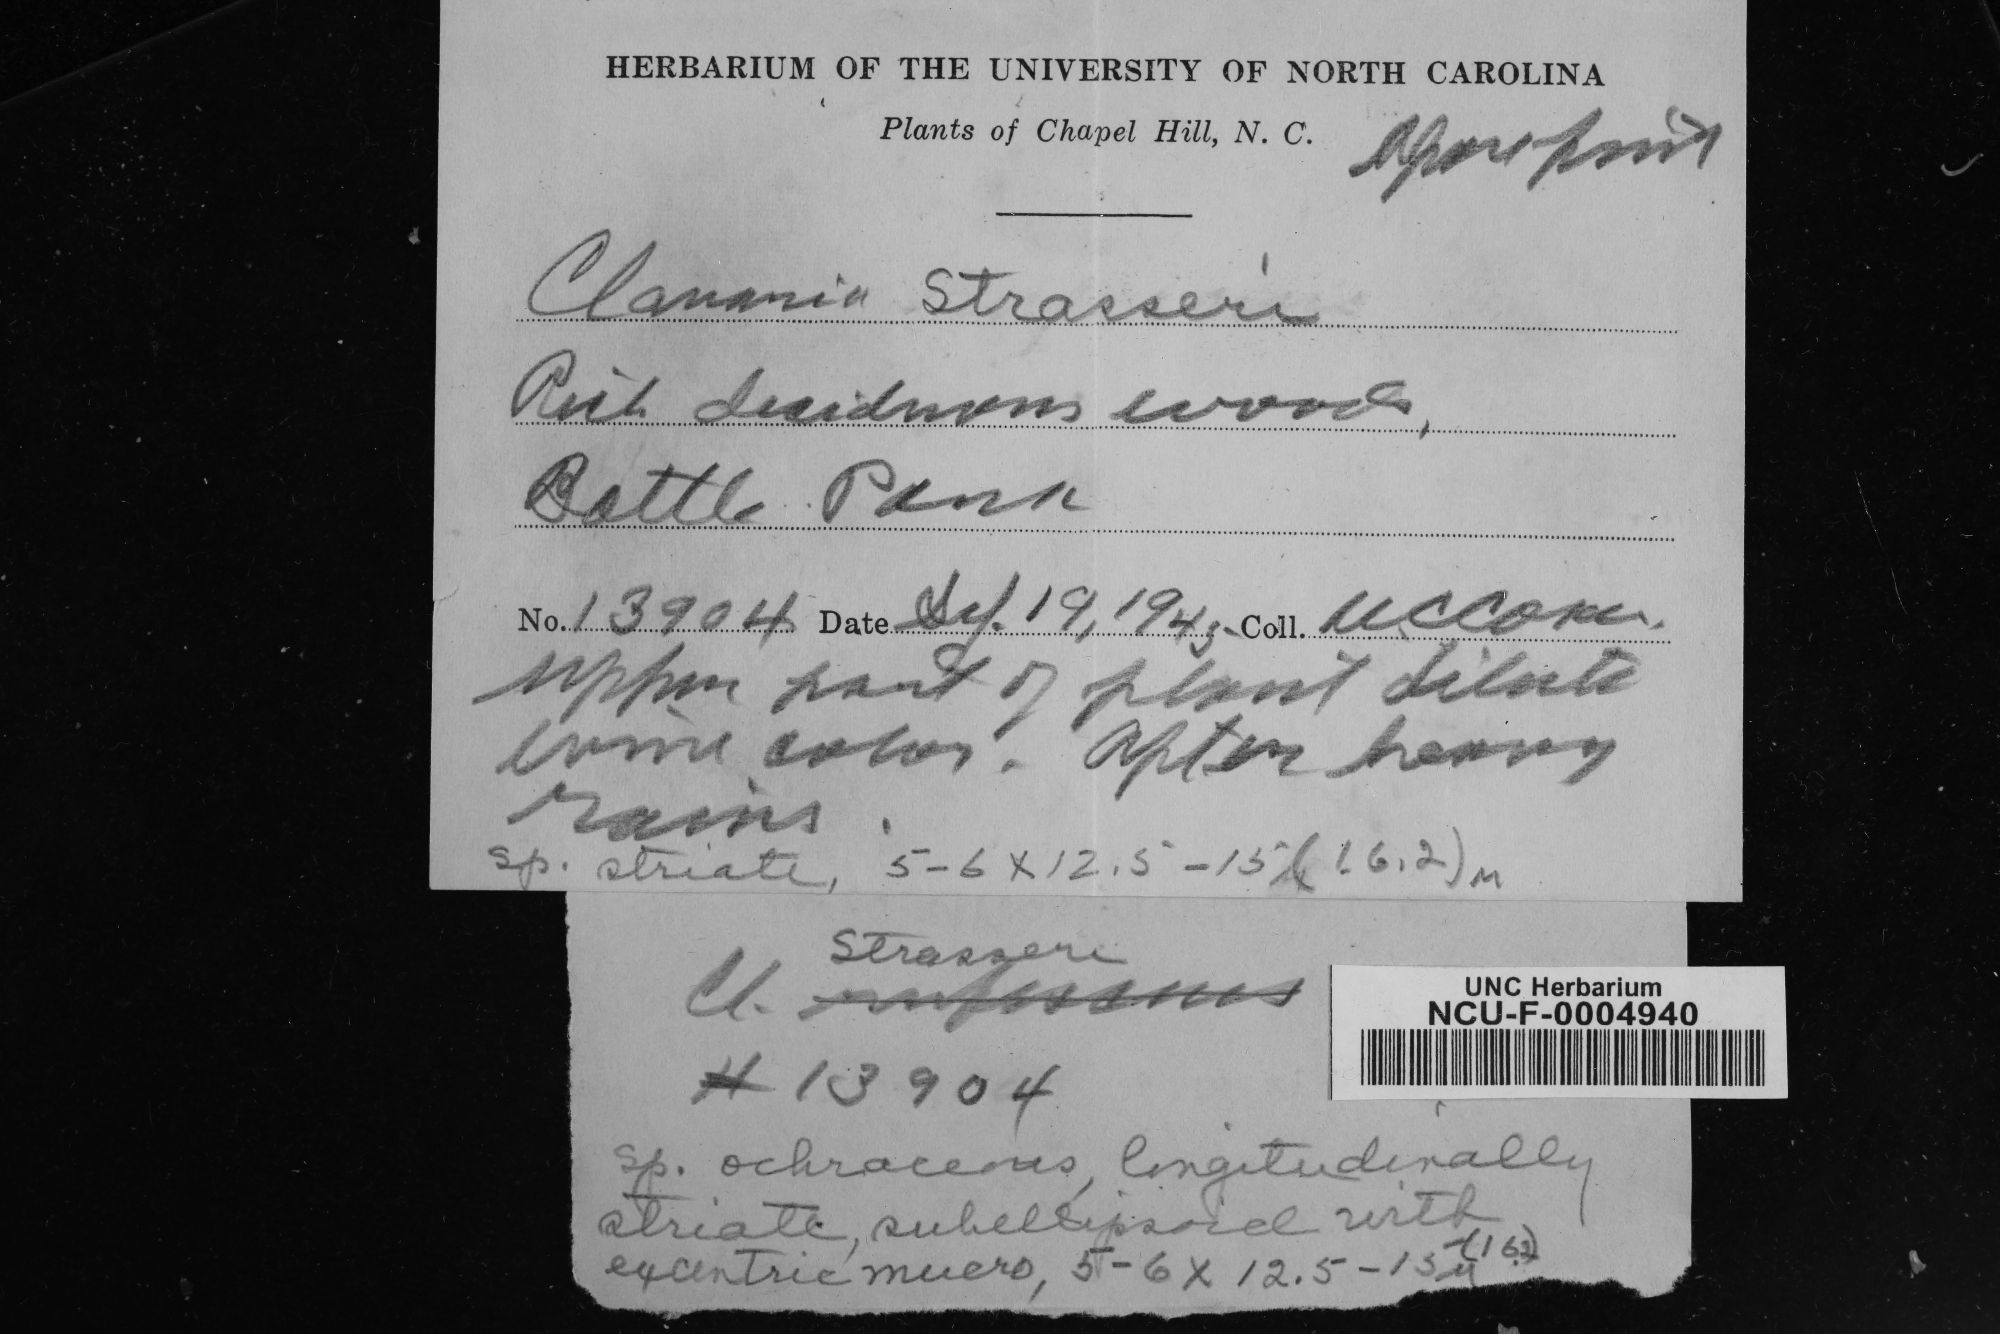 HERBARIUM OF THE UNIVERSITY OF NORTH CAROLINA
Plants of Chapel Hill, N. C.
A spore print
Clavaria Strasseri
Rich deciduous woods,
Battle Park
No. 13904 Date Sep. 19, 1945 Coll. WCCoker.
Upper part of plant dilute
wine color. After heavy
rains.
sp. striate, 5-6 X 12.5-15(16.2)µ
Strasseri
Cl.
# 13904
UNC Herbarium
NCU-F-0004940
sp. ochraceous, longitudinally
striate, subellipsoid with
excentric mucro, 5-6 X 12.5-15µ(16.2)